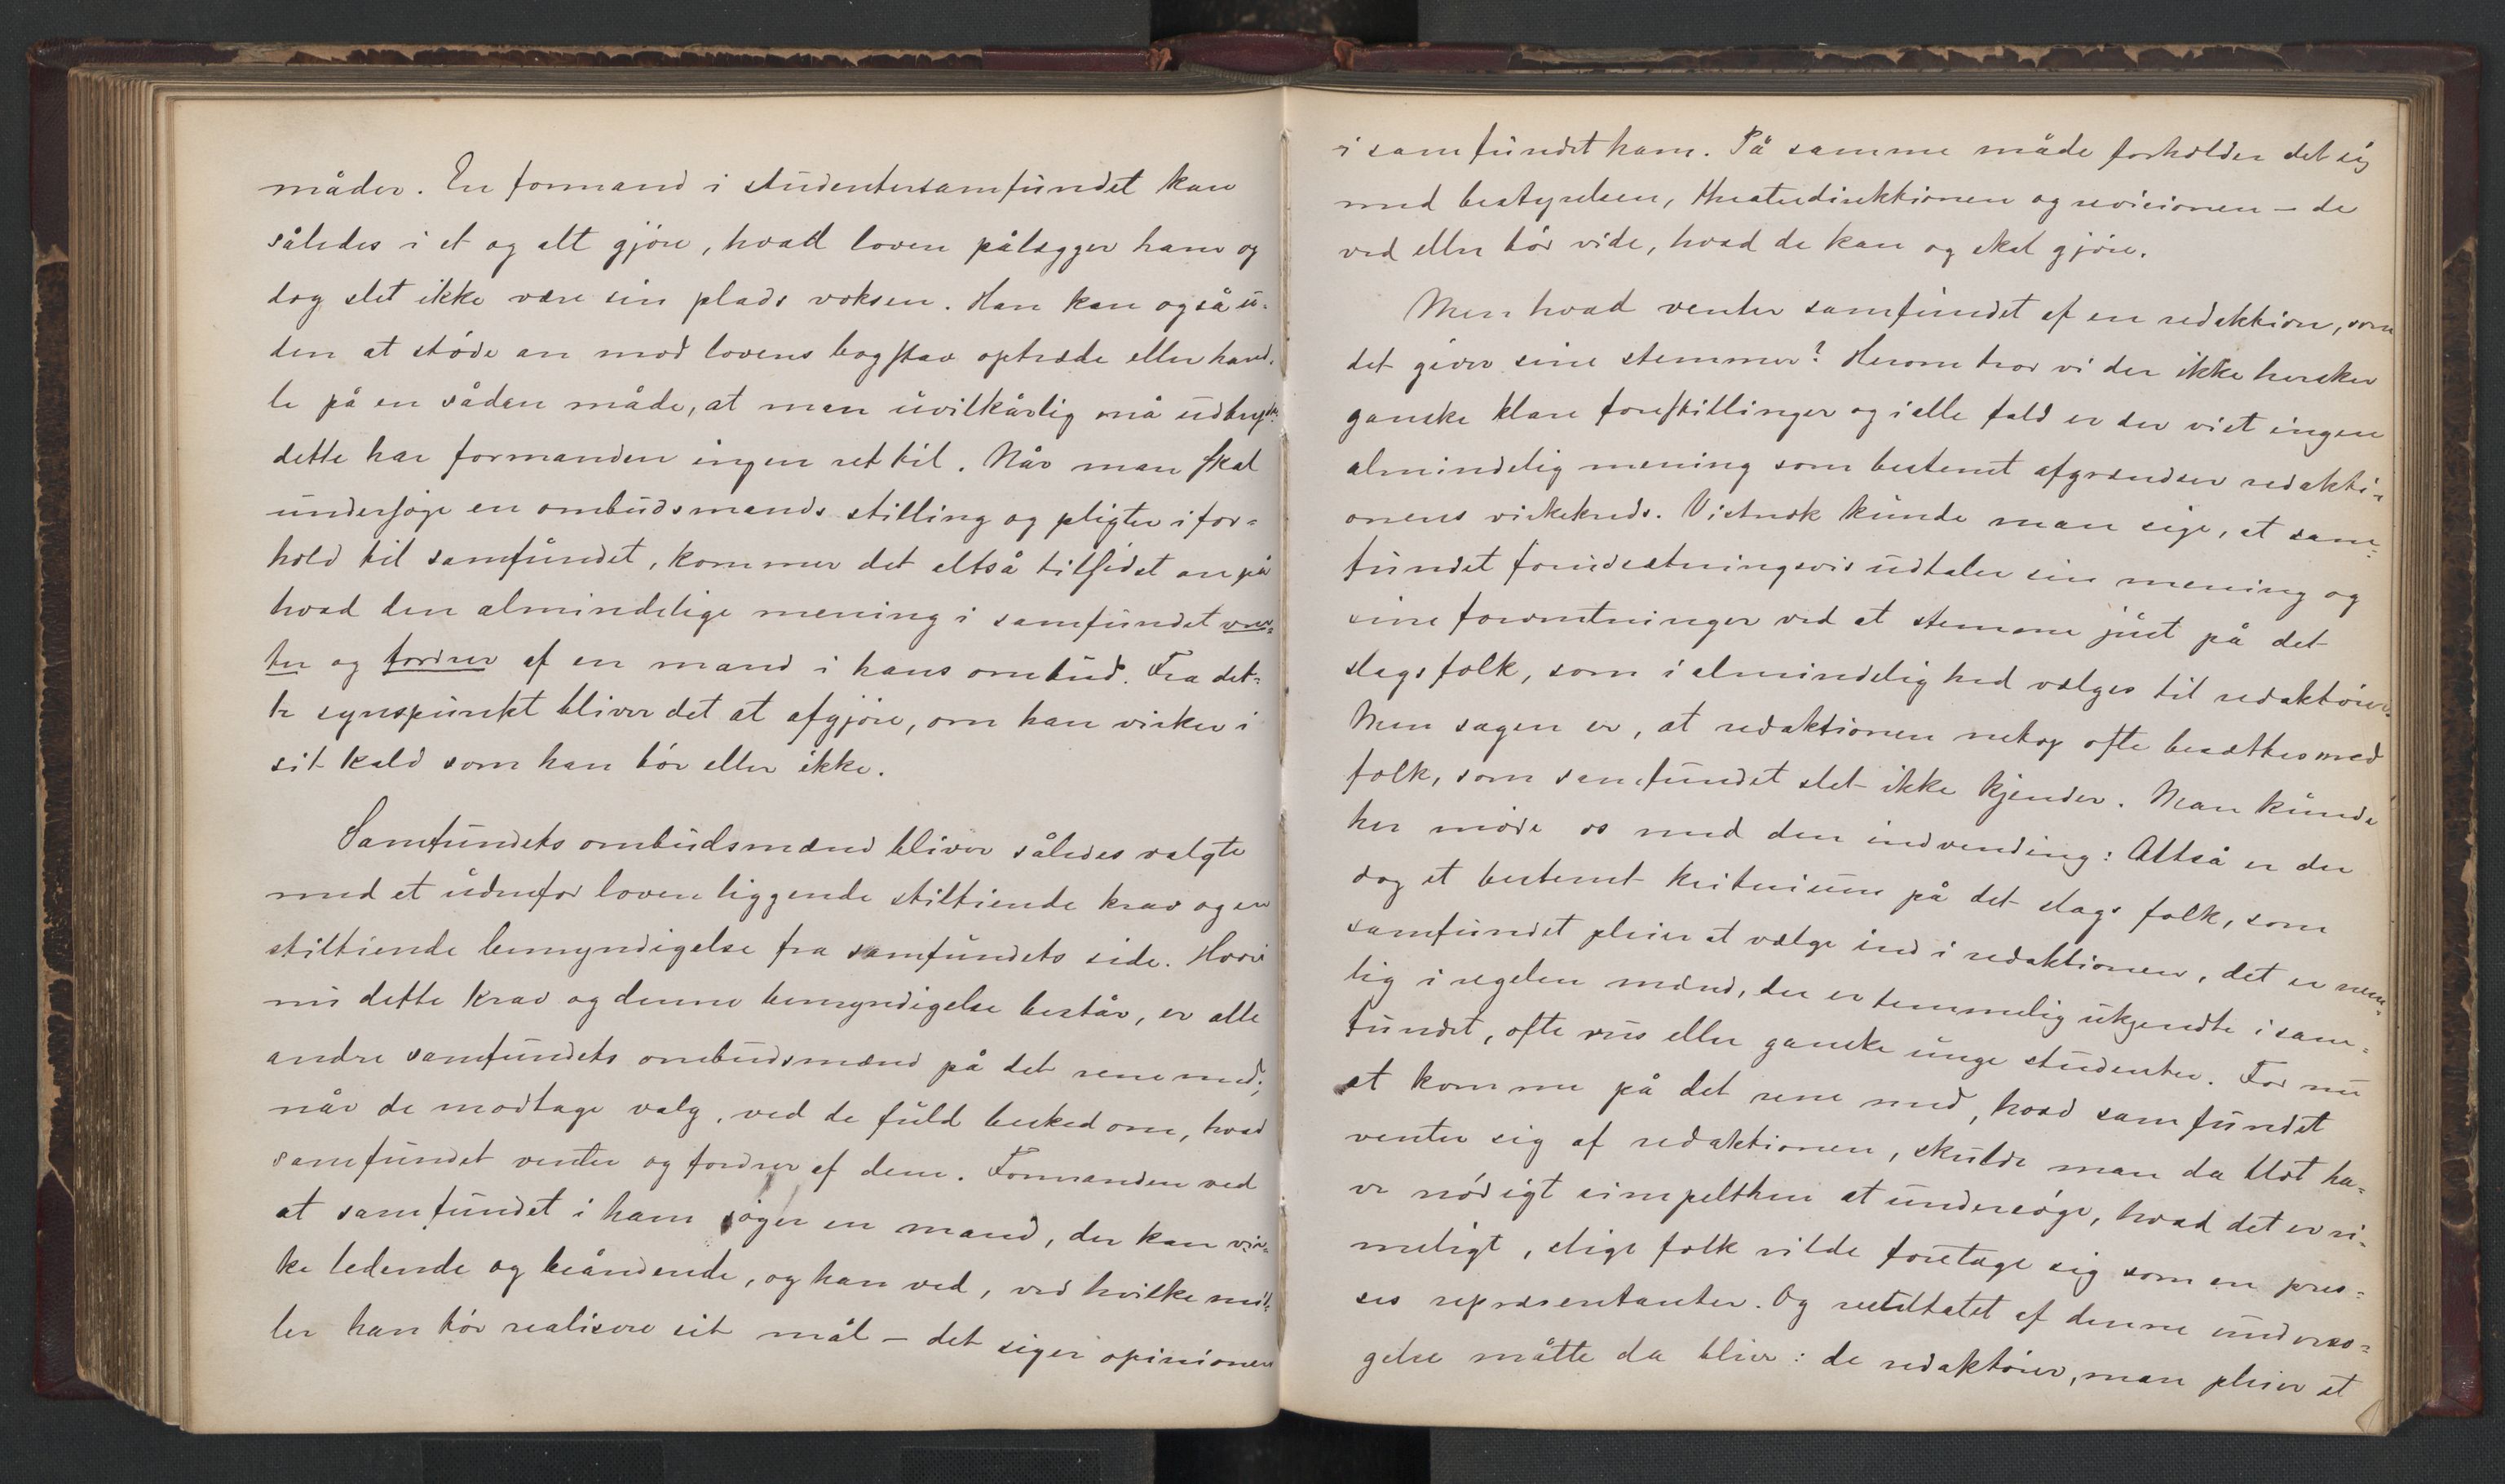 måder. En formand i studentersamfundet kan
således i et og alt gjöre, hvad loven pålægger ham og
dog slet ikke være sin plads voksen. Han kan også u-
den at støde an mod lovens bogstav optræde eller hand-
le på en sådan måde, at man uvilkårlig må udbryde:
dette har formanden ingen ret til. Når man skal
undersøge en ombudsmands stilling og pligter i for-
hold til samfundet, kommer det altså tilsidst an på
hvad den almindelige mening i samfundet ven-
ter og fordrer af en mand i hans ombud. Fra det-
te synspunkt bliver det at afgjöre, om han virker i
sit kald som han bör eller ikke.
Samfundets ombudsmænd bliver således valgte
med et udenfor loven liggende stiltiende krav og en
stiltiende bemyndigelse fra samfundets side. Hvori
nu dette krav og denne bemyndigelse består, er alle
andre samfundets ombudsmænd på det rene med;
når de modtage valg, ved de fuld besked om, hvad
samfundet venter og fordrer af dem. Formanden ved
at samfundet i ham søger en mand, der kan vir-
ke ledende og beåndende, og han ved, ved hvilke mid-
ler han bör realisere sit mål – det siger opinionen
i samfundet ham. På samme måde forholder det sig
med bestyrelsen, theaterdirektionen og revisionen – de
ved eller bör vide, hvad de kan og skal gjöre.
Men hvad venter samfundet af en redaktion, som
det giver sine stemmer? Herom tror vi der ikke hersker
ganske klare forestillinger og i alle fald er der vist ingen
almindelig mening som bestemt afgrændser redakti-
onens virkekreds. Vistnok kunde man sige, at sam-
fundet forudsætningsvis udtaler sin mening og
sine forventninger ved at stemme just på det
slags folk, som i almindelighed vælges til redaktörer.
Men sagen er, at redaktionen netop ofte besættes med
folk, som samfundet slet ikke kjender. Man kunde
her möde os med den indvending: Altså er der
dog et bestemt kriterium på det slags folk, som
samfundet pleier at vælge ind i redaktionen, det er nem-
lig i regelen mænd, der er temmelig ukjendte i sam-
fundet, ofte rus eller ganske unge studenter. For nu
at komme på det rene med, hvad samfundet
venter sig af redaktionen, skulde man da blot ha-
ve nödigt simpelthen at undersöge, hvad det er ri-
meligt, slige folk vilde foretage sig som en pres-
ses repræsentanter. Og resultatet af denne undersö-
gelse måtte da blive: de redaktörer, man pleier at